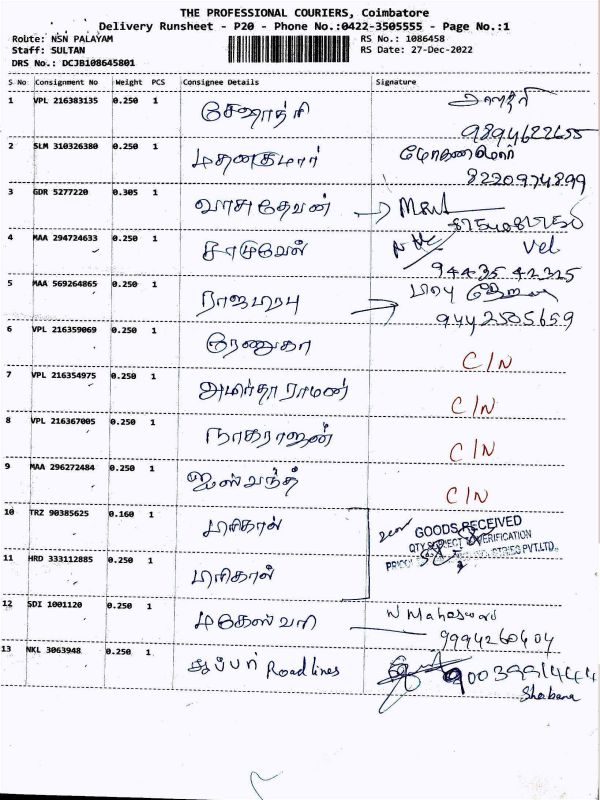 THE PROFESSIONAL COURIERS, Coimbatore
Delivery Runsheet - P20 - Phone No.:0422-3505555 - Page No.:1
Route: NSN PALAYAM
RS No.: 1086458
Staff: SULTAN
RS Date: 27-Dec-2022
DRS No.: DCJB108645801
S No Consignment No Weight PCS Consignee Details Signature
1 VPL 216383135 0.250 1 சேஷாத்ரி
9894622655
2 SLM 310326380 0.250 1 மதனகுமார்
8220974899
3 GDR 5277220 0.305 1 வாசுதேவன்
4 MAA 294724633 0.250 1 சாமுவேல் Vel
94435 42325
5 MAA 569264865 0.250 1 ராஜபிரபு
9442505659
6 VPL 216359069 0.250 1 ரேணுகா C/N
7 VPL 216354975 0.250 1 அமிர்தா ராமன் C/N
8 VPL 216367005 0.250 1 நாகராஜன் C/N
9 MAA 296272484 0.250 1 ஜஸ்வந்த் C/N
10 TRZ 90385625 0.160 1 பரிகால்
GOODS RECEIVED
QTY SUBJECT VERIFICATION
PVT.LTD.
11 HRD 333112885 0.250 1 பரிகால்
12 SDI 1001120 0.250 1 மகேஸ்வரி
9994260404
13 NKL 3063948 0.250 1 சூப்பர் Roadlines 9003991444
Shabana